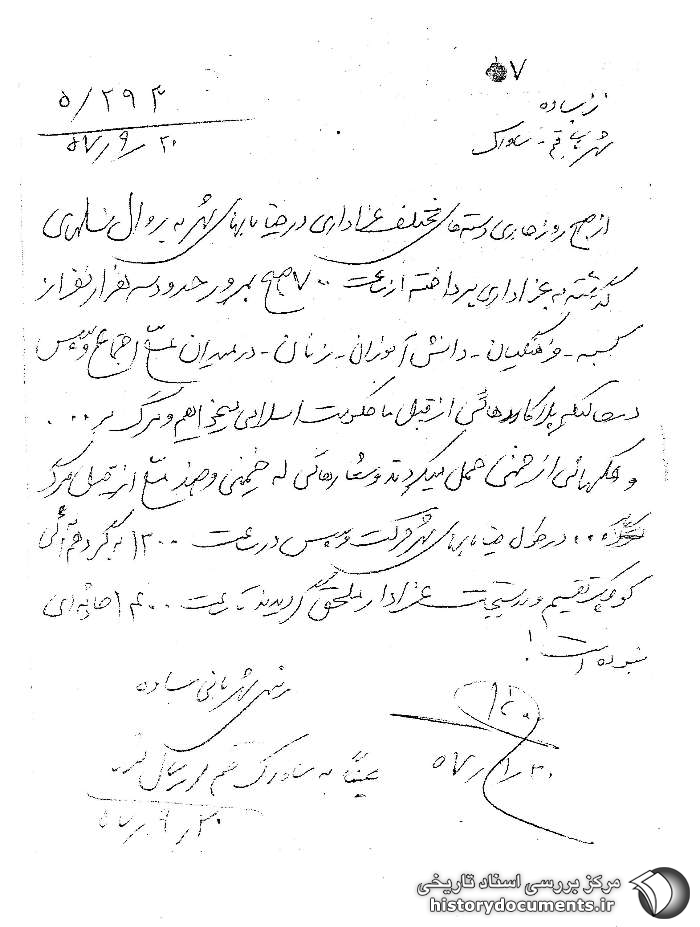 ۰۷
از ساوه
شهربانی قم - ساواک
۵/۲۹۴
۵۷/۹/۲۰
از صبح روز جاری دسته‌های مختلف عزاداری در خیابانهای شهر به روال سالهای
گذشته به عزاداری پرداخته از ساعت ۷۰۰ صبح بمرور حدود سه هزار نفر از
کسبه - فرهنگیان - دانش آموزان - زنان - در میدان اجتماع و سپس
پلاکاردهائی از قبیل ما حکومت اسلامی میخواهیم و مرگ بر ۰۰۰
و عکسهائی از خمینی حمل میکردند و شعارهائی له خمینی و ضد از قبیل مرگ
۰۰۰ در طول خیابانهای شهر حرکت و سپس در ساعت ۱۳۰۰ به گردهم‌آئی
کوچک تقسیم و دستجات عزادار ملحق گردیدند تا ساعت ۱۴۰۰ حادثه‌ای
نبوده است!
رئیس شهربانی ساوه
عیناً به ساواک قم ارسال
۵۷/۹/۲۰
مرکز بررسی اسناد تاریخی
historydocuments.ir